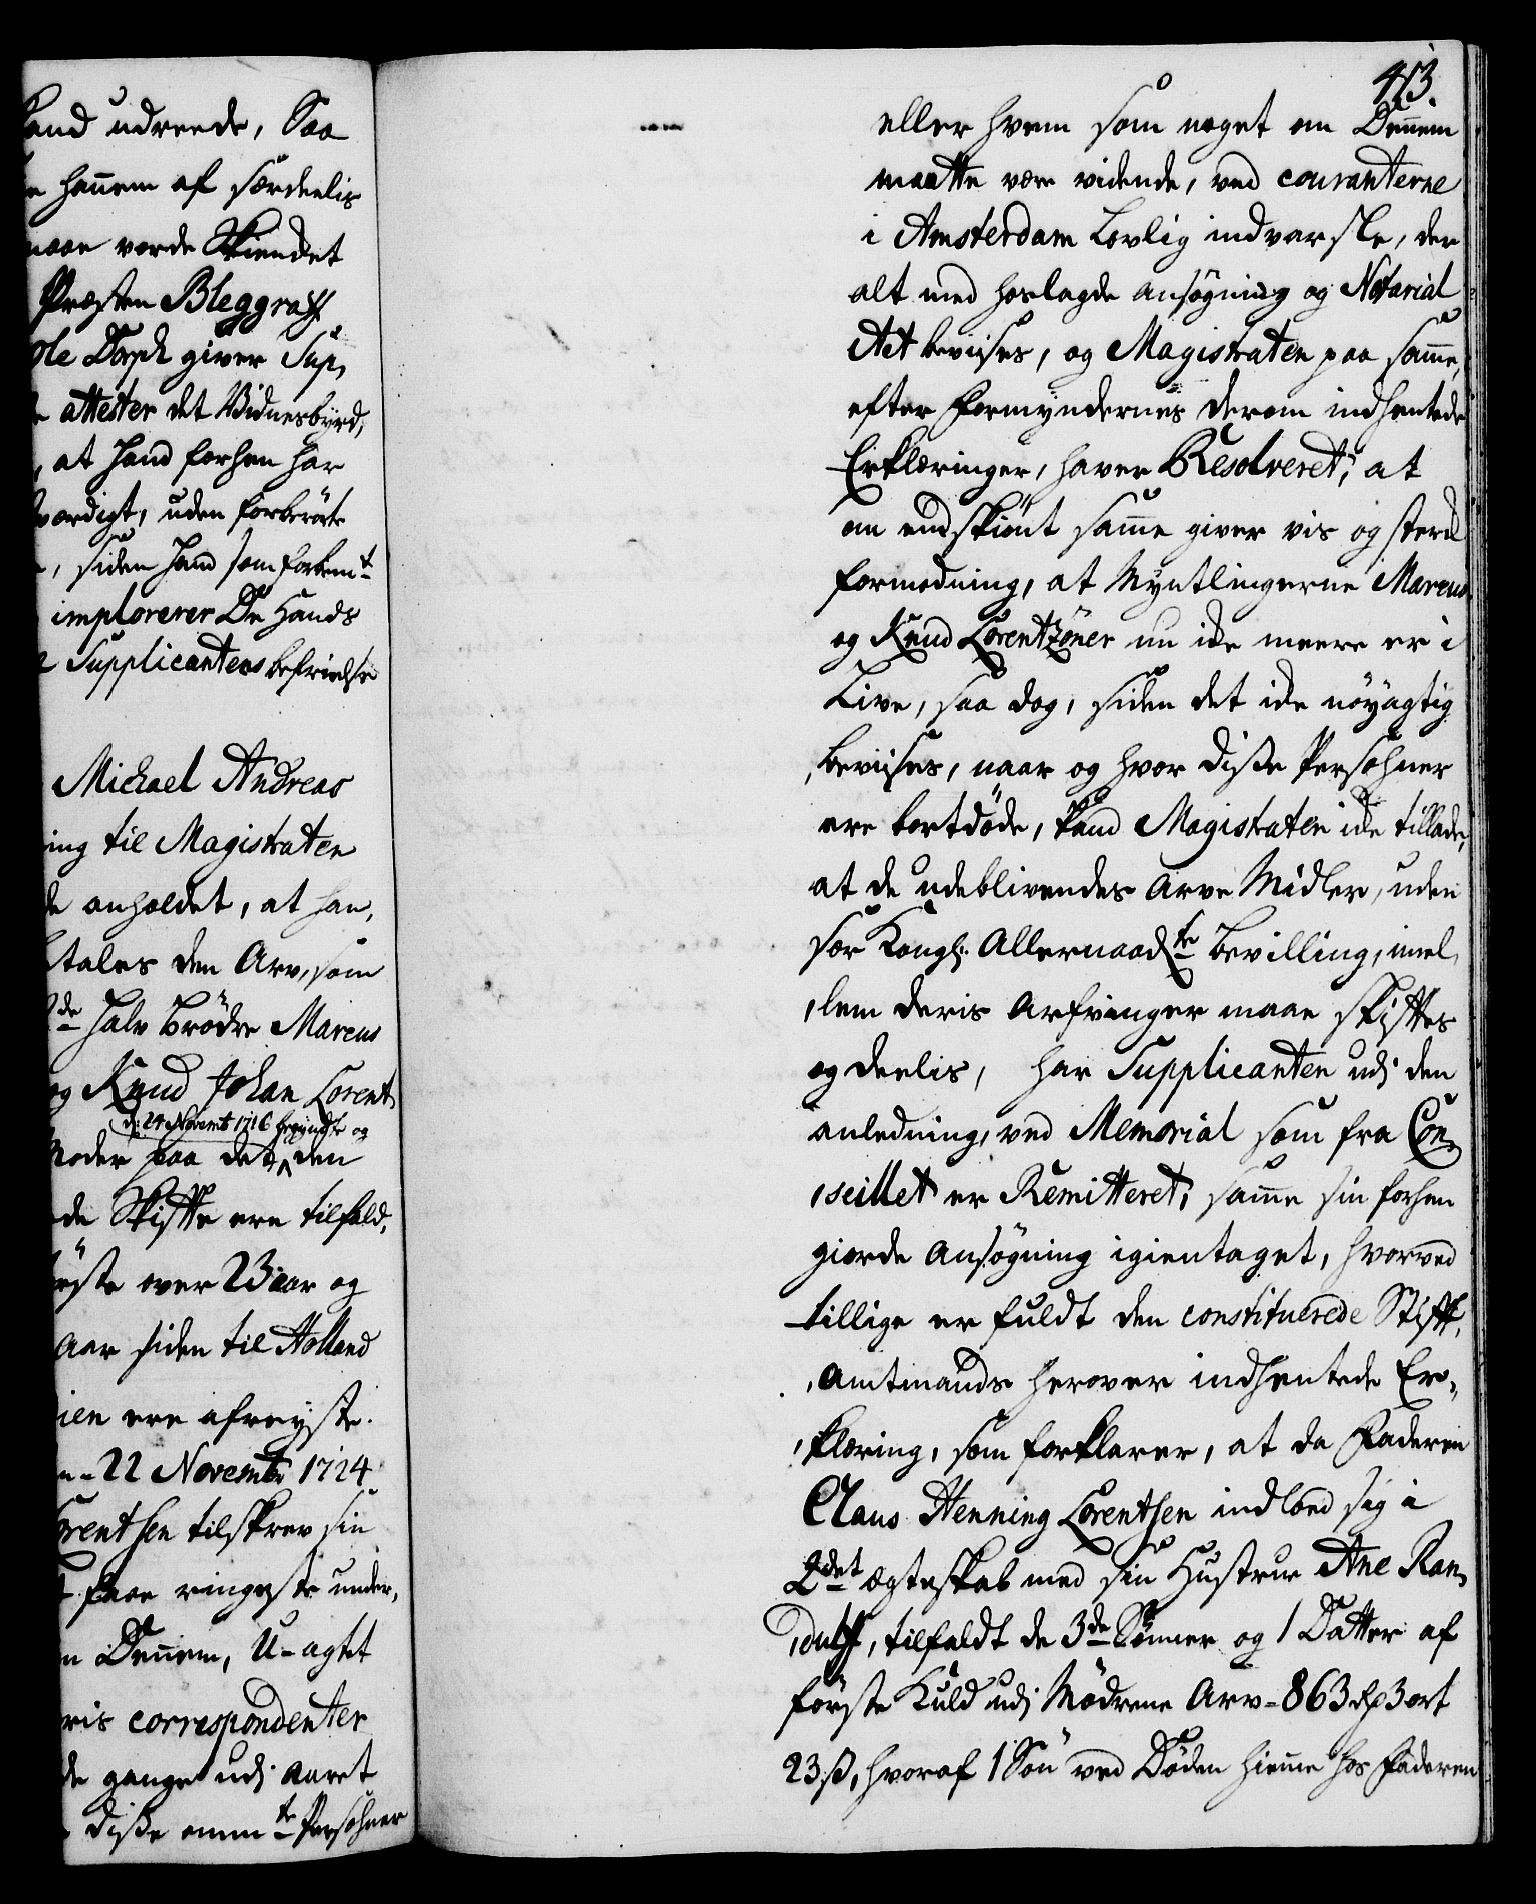 and udreede, Saa
hannem af særdeelis
maae vorde Skiendet
Præsten Bleggraff
Ole Dorph giver Sup,
attester det Vidnesbyrd,
, at hand forhen har
værdigt, uden forberørte
, siden hand som forbem.t
implorerer De Hands
Supplicantens befrielse
Michael Andreas
ing til Magistraten
de anholdet, at han,
tales den Arv, som
de halv brødre Marcus
og Knud Johan Lorent,
d: 24 Novemb 1716 begyndte og
Moder paa det den
de Skiffte ere tilfald,
rste over 23 aar og
Aar siden til Holland
ien ere afreyste.
22 Novembr 1724
orentsen tilskrev sin
faae ringeste under,
Dennem, U-agtet
ris correspondenter
de gange udj aaret
diße omm.te Persohner
413.
eller hvem som noget om Dennem
maatte være vidende, ved couranterne
i Amsterdam Lovlig indvarsle, der
alt med hoslagde ansøgning og Notarial
Act beviises, og Magistraten paa samme,
efter Formyndernes derom indhentede
Erklæringer, haver Resolveret, at
om endskiønt samme giver vis og sterk
formodning, at Myntlingerne Marcus
og Knud Lorentzøner nu icke meere er i
Live, saa dog, siden det icke nøyagtig
beviises, naar og hvor diße Persohner
ere bortdøde, kand Magistraten icke tillade,
at de udeblivendes Arve Midler, uden
sær Kongl: Allernaad.te bevilling, imel,
,lem deris Arfvinger maae skifftes
og deelis, har Supplicanten udj den
anledning, ved Memorial som fra Con,
,seillet er Remitteret, samme sin forhen
giorde ansøgning igientaget, hvorved
tillige er fuldt den constituerede Stifft,
,amtmands herover indhentede Er,
,klæring, som forklarer, at da Faderen
Claus Henning Lorentsen indlod sig i
2det ægteskab med sin Hustrue Ane Ran,
,dulff, tilfaldt de 3de Sønner og 1 Datter af
første Kuld udj Mødrene Arv = 863 rdr 3 ort
23 ß, hvoraf 1 Søn ved Døden hiemme hos Faderen